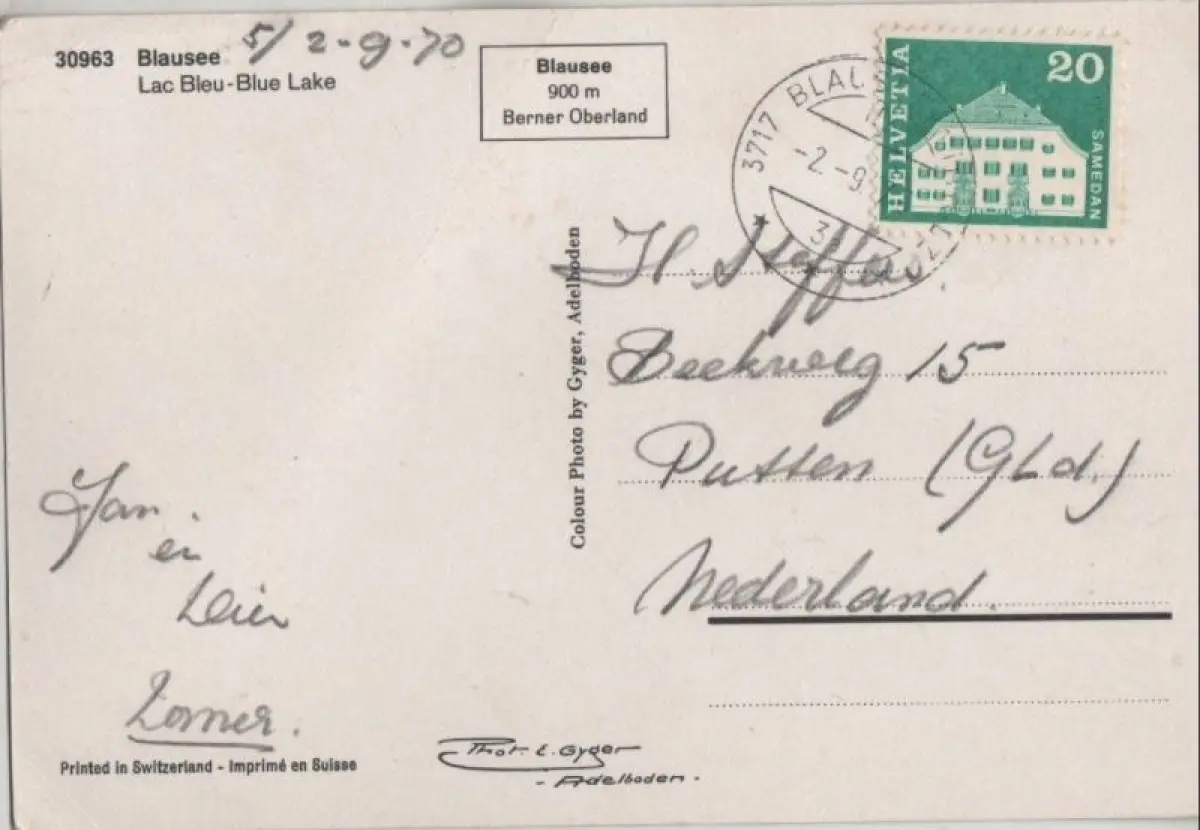 30963 Blausee 5/ 2-9-70
Lac Bleu-Blue Lake
Blausee
900 m
Berner Oberland
3717 BLAU
-2.-9
3
HELVETIA
20
SAMEDAN
Colour Photo by Gyger, Adelboden
H. Steffens.
Beekweg 15
Putten (Gld.)
Nederland.
Jan.
en
Dien
Zomer.
Printed in Switzerland - Imprimé en Suisse
Phot. E. Gyger
- Adelboden -